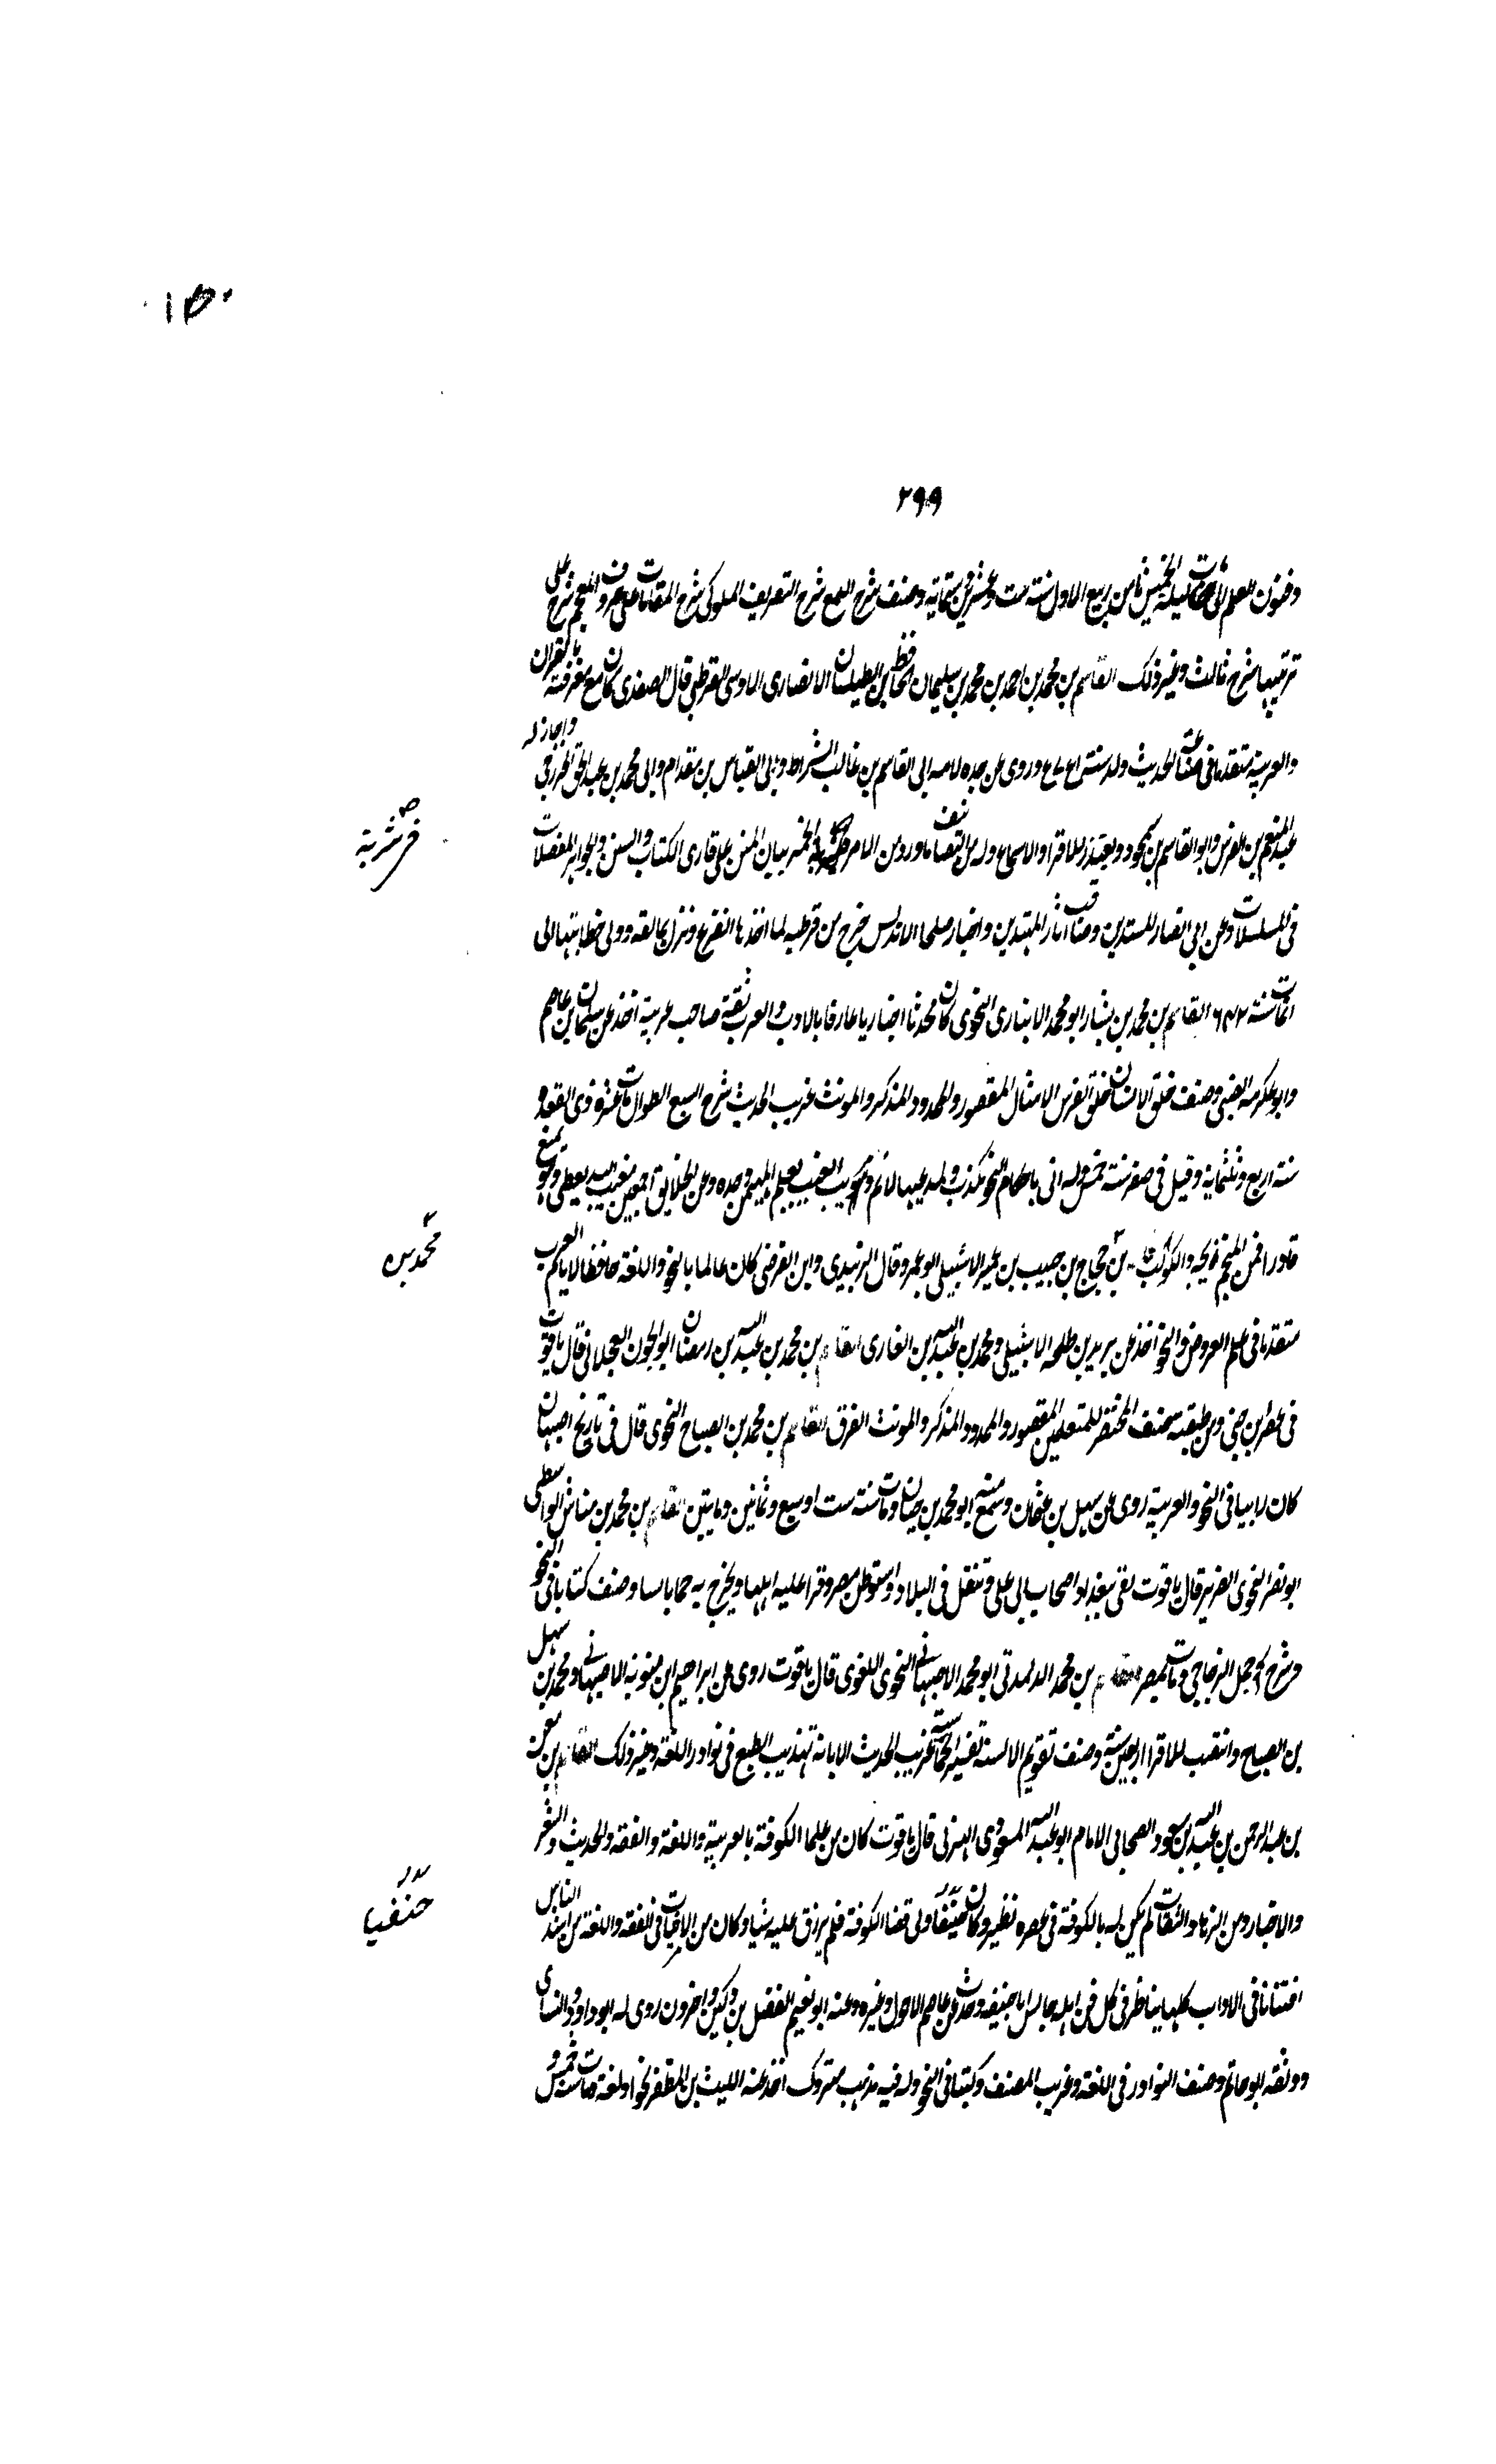 ١٥٠
٢٩٩
وفنون العلم مات ليلة الخميس ثامن ربيع الاول سنة ست وعشرين وستماية وصنف شرح اللمع شرح التصريف الملوكى شرح المقامات على حروف المعجم شرح على
ترتيبها شرح ثالث وغير ذلك القاسم بن محمد بن احمد بن محمد بن سليمان الحافظ بن الطيلسان الانصارى الاوسى القرطبى قال الصفدى كان مع معرفته بالقران
والعربية متقدما فى صناعة الحديث ولد سنة وروى عن جده لامه ابى القاسم بن غالب الشراط وابى العباس بن مقدام وابى محمد بن عبد الحق الخزرجى واجاز له
عبد المنعم بن الفرس وابو القاسم بن سمجود وتصدر للاقرا والاسماع وله من التصانيف ما ورد من الامر فى الخمر بيان المنن على قارى الكتاب والسنن والجواهر المفصلات
خر شربة
فى المسلسلات وغرايب اخبار المسندين ومناقب اثار المهتدين واخبار صلحا الاندلس خرج من قرطبه لما اخذها الفرنج ونزل بمالقه وولى خطابتها الى
ان مات سنة ٦٤٢ القاسم بن محمد بن بشار ابو محمد الانبارى النحوى كان محدثا اخباريا عارفا بالادب والعرب ثقة صاحب عربية اخذ عن سليمان بن عاصم
وابو عكرمه الضبى وصنف خلق الانسان خلق الفرس الامثال المقصور والممدود المذكر والمونث غريب الحديث شرح السبع الطوال مات غرة ذى القعدة
سنة اربع وثلثماية وقيل فى صفر سنة خمس وله انى باحكام النجوم مكذب ولمدعيها لائم ومونب الغيب يعلمه المهيمن وحده وعن الخلايق اجمعين مغيب الله يعطى وهو يمنع
قادرا فمن المنجم ويحه والكوكب بن حجاج بن حبيب بن عمير الاشبيلى ابو عمرو قال الزبيدى وابن الفرضى كان عالما بالنحو واللغة حافظا لايام العرب
محمد بن
متقدما فى علم العروض والنحو اخذ عن يزيد بن طلحه الاشبيلى ومحمد بن عبد الله بن الغازى القاسم بن محمد بن عبد الله بن رمضان ابو الجون العجلانى قال ياقوت
فى عصر بن جنى ومن طبقته صنف المختصر للمتعلمين المقصور والممدود المذكر والمونث الفرق القاسم بن محمد بن الصباح النحوى قال فى تاريخ اصبهان
كان راسا فى النحو والعربية روى عن سهل بن عثمان وسمع منه ابو محمد بن حيان ومات سنة ست او سبع وثمانين ومايتين القاسم بن محمد بن مباشر الواسطى
ابو نصر النحوى الضرير قال ياقوت لقى ببغداد اصحاب ابى على وتنقل فى البلاد واستوطن مصر وقرا عليه اهلها وتخرج به بن بابشاد وصنف كتابا فى النحو
وشرح جمل الزجاجى ومات بمصر القاسم بن محمد الديمرتى ابو محمد الاصبهانى النحوى اللغوى قال ياقوت روى عن ابراهيم ابن متويه الاصبهانى ومحمد بن سهل
بن الصباح وانتصب للاقرا اربعين سنة وصنف تقويم الالسنة تفسير الحماسة غريب الحديث الابانة تهذيب الطبع فى نوادر اللغة وغير ذلك القاسم بن معن
بن عبد الرحمن بن عبد الله بن مسعود الصحابى الامام ابو عبد الله المسعودى الهزلى قال ياقوت كان من علما الكوفة بالعربية واللغة والفقه والحديث والشعر
والاخبار ومن الزهاد والثقات لم يكن له بالكوفة فى عصره نظير وكان حنيفا ولى قضا الكوفة فلم يرزق عليه شيا وكان من الاثبات فى الفقه واللغة من اشد الناس
حنفيا
افتنانا فى الاداب كلها يناظر فى كل فن اهله جالس اباحنيفه وحدث عن عاصم الاحول وغيره وعنه ابو نعيم الفضل بن دكين واخرون روى له ابو داود والنسائى
ووثقه ابو حاتم وصنف النوادر فى اللغة وغريب المصنف وكتبا فى النحو وله فيه مذهب متروك اخذ عنه الليث بن المظفر نحوا ولغة مات سنة خمس و